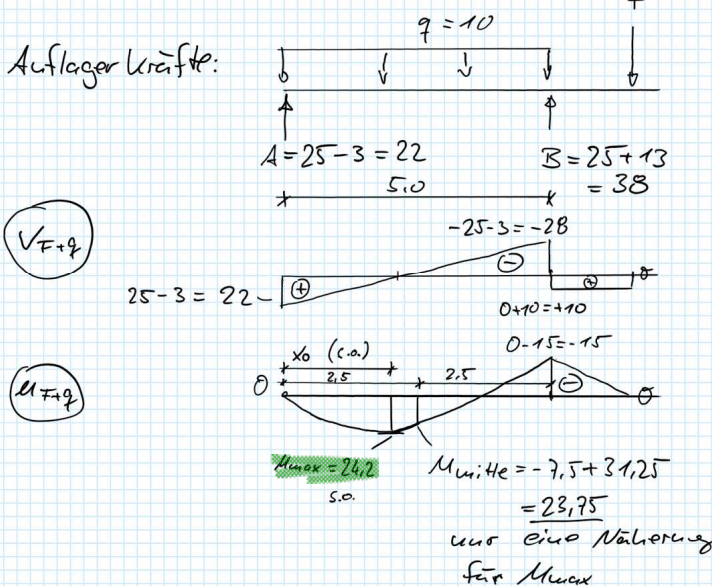 q = 10
Auflagerkräfte:
A = 25 - 3 = 22
B = 25 + 13
= 38
5,0
V F+q
-25 - 3 = -28
⊖
25 - 3 = 22
⊕
⊕
0 + 10 = +10
M F+q
x₀ (s.o.)
0 - 15 = -15
0
2,5
2,5
⊖
Mmax = 24,2
s.o.
Mmitte = -7,5 + 31,25
= 23,75
nur eine Näherung
für Mmax